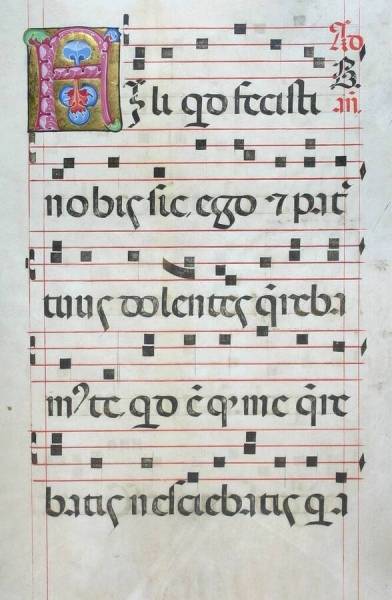 Ad
Fili qd fecisti B.
an̄
nobis sic. ego ⁊ pat̄
tuus dolentes q̄reba
mꝰ te. qd ē qꝫ me q̄re
batis nesciebatis qa